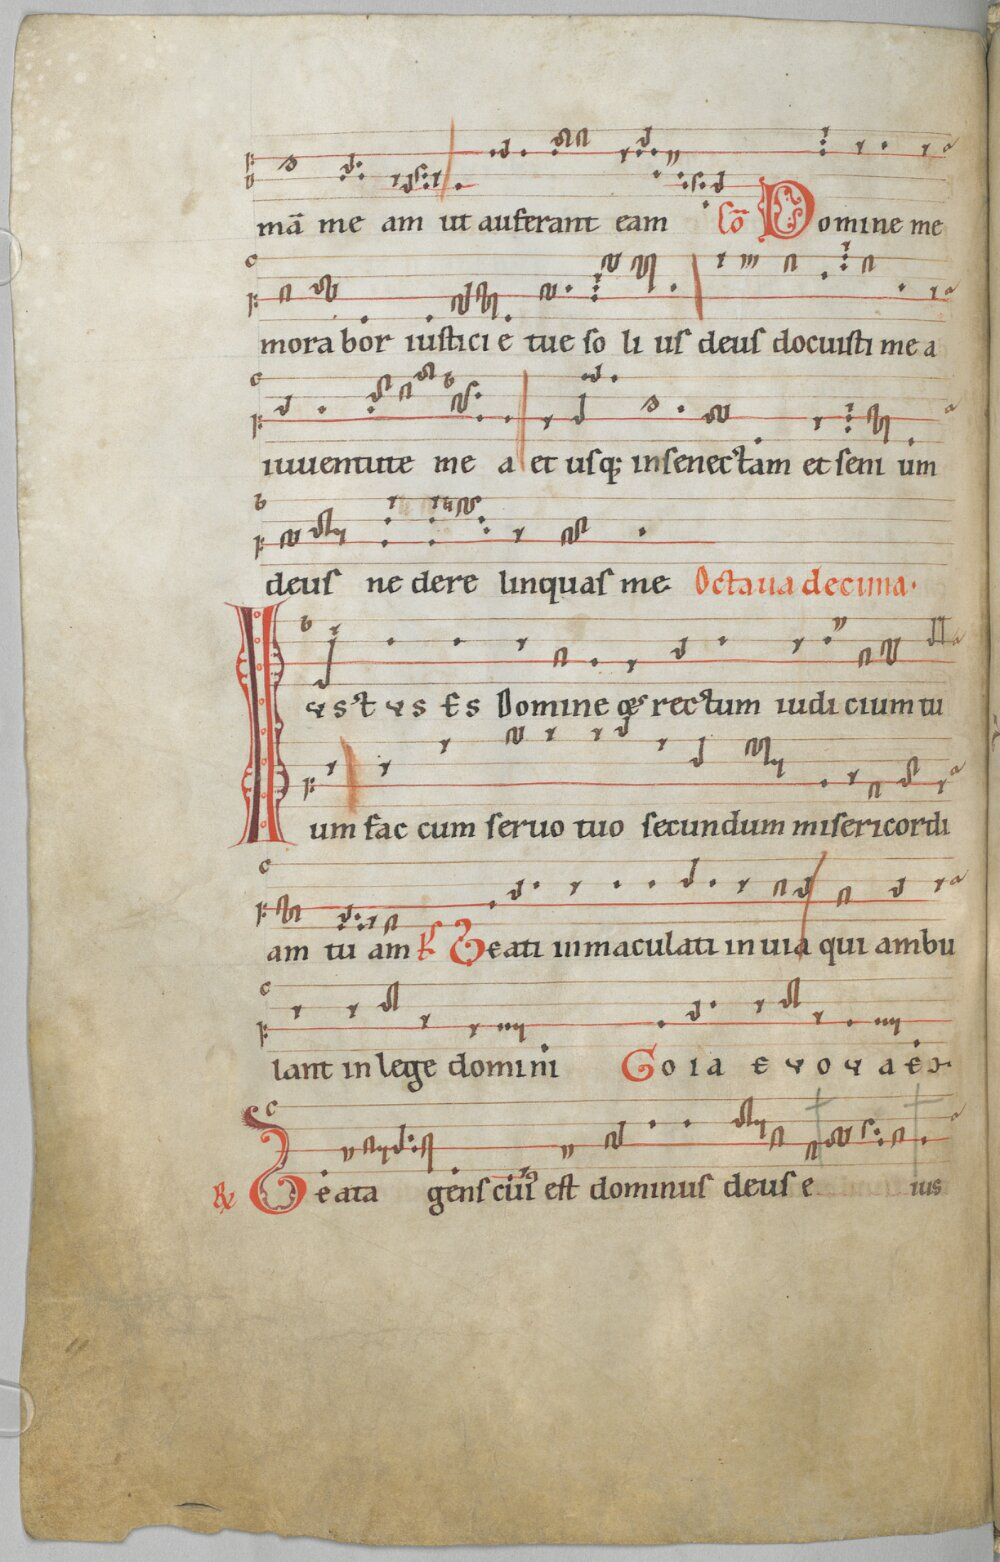 mā me am ut auferant eam Cō Domine me
mora bor iusticı e tue so li us deus docuisti me a
iuuentute me a et usq; in senectam et seni um
deus ne dere linquas me Octaua decima·
IUSTUS ES Domine & rectum iudi cium tu
um fac cum seruo tuo secundum misericordi
am tu am Ps Beati inmaculati in uia qui ambu
lant in lege domini Goia e u o u a e
℟ Beata gens cui9 est dominus deus e ius